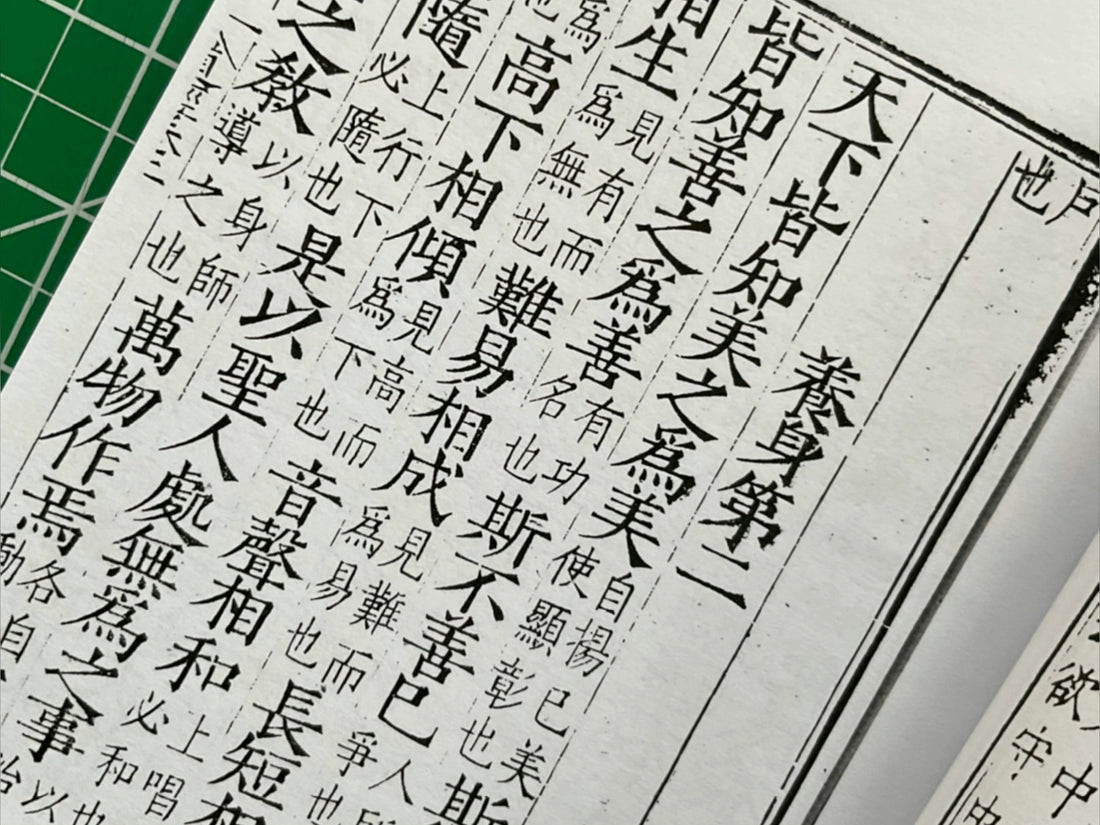 戶
也
養身第二
天下皆知美之爲美自揚己美使顯彰也斯
皆知善之爲善有功名也斯不善已人所爭也
相生見有而爲無也難易相成見難而爲易也長短相
爲也高下相傾見高而爲下也音聲相和上唱必和也
隨上行下必隨也是以聖人處無爲之事以
之教以身師導之也萬物作焉各自動
欲
中
守中